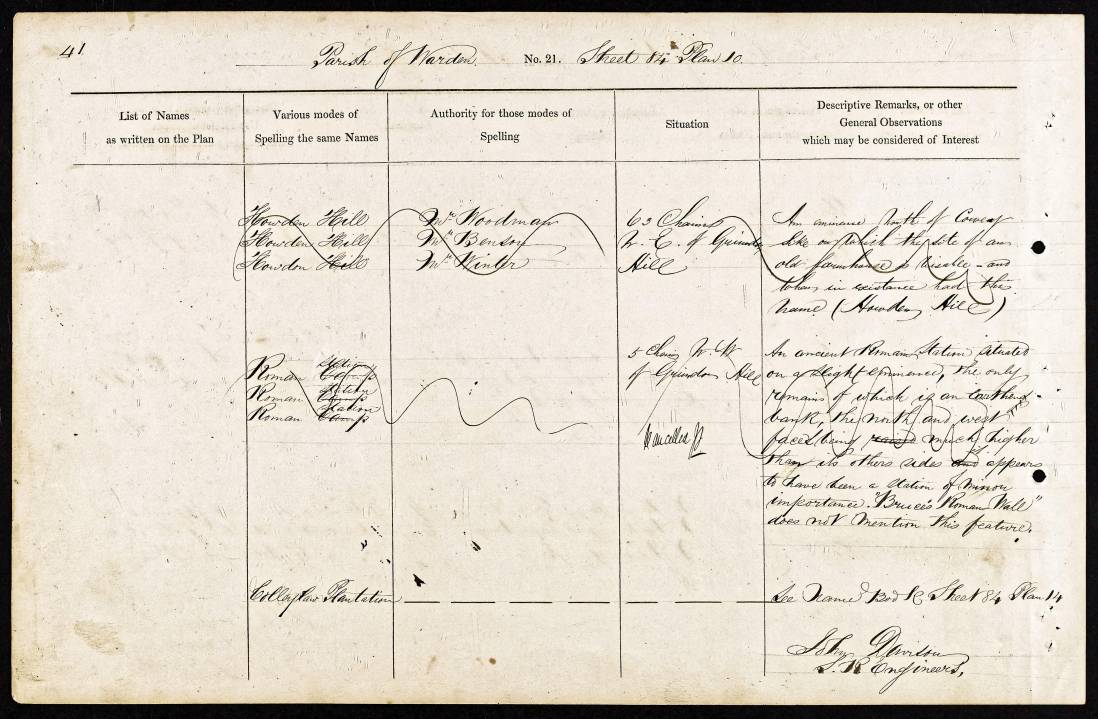 41
Parish of Warden. No. 21. Sheet 84 Plan 10.
List of Names
as written on the Plan
Various modes of
Spelling the same Names
Authority for those modes of
Spelling
Situation
Descriptive Remarks, or other
General Observations
which may be considered of Interest
Howden Hill
Howden Hill
Howden Hill
Mr. Woodman
Mr. Benson
Mr. Winter
63 Chains
N. E. of Grindon
Hill
An eminence North of
like the site of an
old farmhouse is visible - and
when in existance had this
name (Howden Hill)
Roman Station Camp
Roman Station Camp
Roman Station Camp
5 Chains N. W
of Grindon Hill
Cancelled
An ancient Roman Station situated
on a slight eminence, the only
remains of which is an Earthen-
bank, the north and west
faces being raised much higher
than its others sides and appears
to have been a station of minor
importance. "Bruce's Roman Wall"
does not mention this feature.
Plantation
See Name Book Sheet 84 Plan 14
John Davison
S. R Engineers,